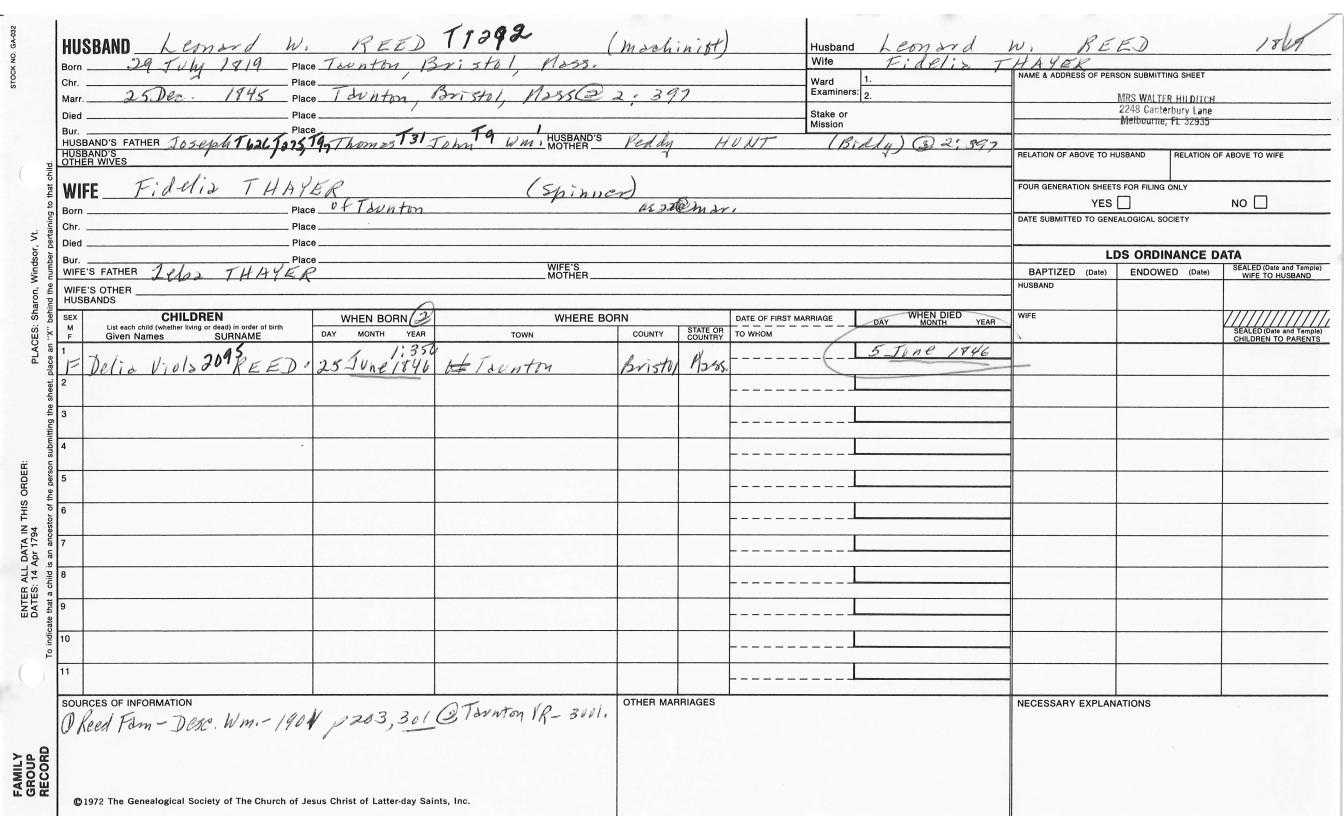 STOCK NO. GA-032
HUSBAND Leonard W. REED T1292 (machinist)
Born 29 July 1819 Place Taunton, Bristol, Mass.
Chr. Place
Marr. 25 Dec. 1845 Place Taunton, Bristol, Mass ② 2:397
Died Place
Bur. Place
HUSBAND'S FATHER Joseph T626, T275, T97, Thomas T31 John T9 Wm.1 HUSBAND'S MOTHER Peddy HUNT (Biddy) ② 2:397
HUSBAND'S OTHER WIVES
WIFE Fidelia THAYER (Spinner)
Born Place of Taunton ae 22 @ mar.
Chr. Place
Died Place
Bur. Place
WIFE'S FATHER THAYER WIFE'S MOTHER
WIFE'S OTHER HUSBANDS
Husband Leonard W. REED 1819
Wife Fidelia THAYER
Ward Examiners: 1. 2.
Stake or Mission
NAME & ADDRESS OF PERSON SUBMITTING SHEET
MRS WALTER HILDITCH
2248 Canterbury Lane
Melbourne, FL 32935
RELATION OF ABOVE TO HUSBAND RELATION OF ABOVE TO WIFE
FOUR GENERATION SHEETS FOR FILING ONLY
YES NO
DATE SUBMITTED TO GENEALOGICAL SOCIETY
LDS ORDINANCE DATA
BAPTIZED (Date) ENDOWED (Date) SEALED (Date and Temple) WIFE TO HUSBAND
HUSBAND
WIFE
SEALED (Date and Temple) CHILDREN TO PARENTS
SEX M F
CHILDREN
List each child (whether living or dead) in order of birth
Given Names SURNAME
WHEN BORN ②
DAY MONTH YEAR
WHERE BORN
TOWN COUNTY STATE OR COUNTRY
DATE OF FIRST MARRIAGE
TO WHOM
WHEN DIED
DAY MONTH YEAR
1 F Delia Viola 2095 REED 25 June 1846 1:350 Taunton Bristol Mass. 5 June 1846
2
3
4
5
6
7
8
9
10
11
SOURCES OF INFORMATION
① Reed Fam- Desc. Wm.- 1901 p203, 301 ② Taunton VR- 3001.
OTHER MARRIAGES
NECESSARY EXPLANATIONS
©1972 The Genealogical Society of The Church of Jesus Christ of Latter-day Saints, Inc.
FAMILY GROUP RECORD
ENTER ALL DATA IN THIS ORDER:
DATES: 14 Apr 1794
PLACES: Sharon, Windsor, Vt.
To indicate that a child is an ancestor of the person submitting the sheet, place an "X" behind the number pertaining to that child.